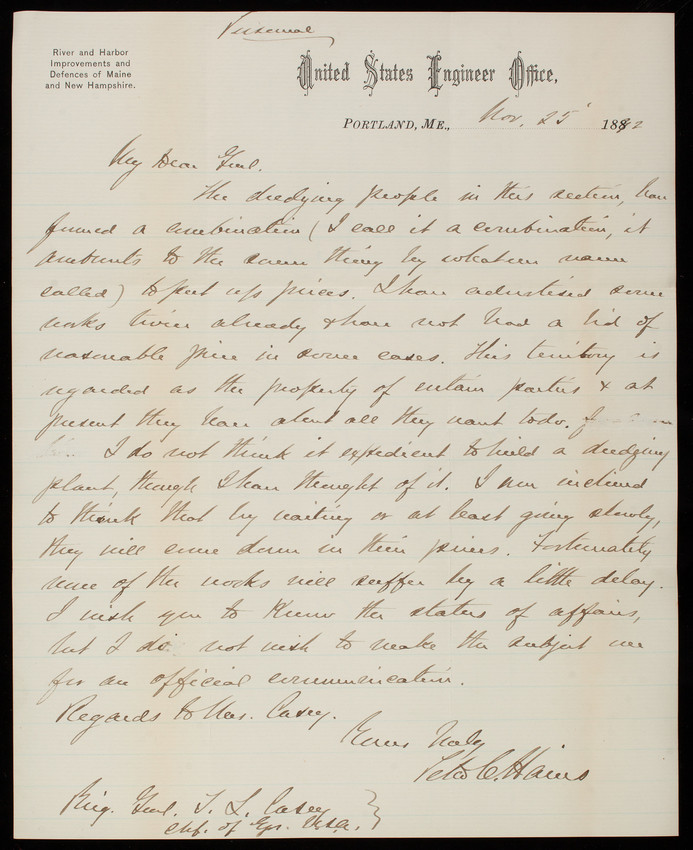 Personal
River and Harbor
Improvements and
Defences of Maine
and New Hampshire.
United States Engineer Office,
PORTLAND, ME., Nov. 25 1892
My Dear Genl.
The dredging people in this section, have
formed a combination (I call it a combination, it
amounts to the same thing by whatever name
called) to put up prices. I have advertised some
works twice already & have not had a bid of
reasonable price in some cases. This territory is
regarded as the property of certain parties & at
present they have about all they want to do.
I do not think it expedient to build a dredging
plant, though I have thought of it. I am inclined
to think that by waiting or at least going slowly,
they will come down in their prices. Fortunately
none of the works will suffer by a little delay.
I wish you to know the status of affairs,
but I do not wish to make the subject one
for an official communication.
Regards to Mrs. Casey.
Yours Truly
Peter C. Hains
Brig. Genl. T. L. Casey
Chf. of Egs. USA.